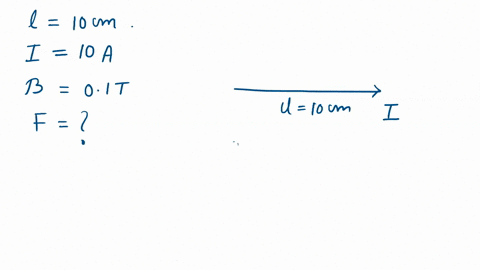 l = 10 cm.
I = 10 A
B = 0.1 T
F = ?
l = 10 cm
I